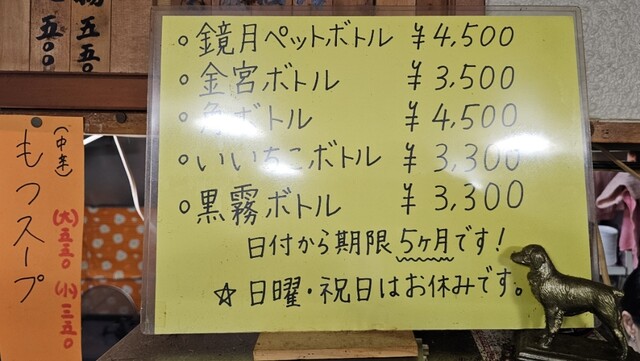 。鏡月ペットボトル ¥4,500
。金宮ボトル ¥3,500
。角ボトル ¥4,500
。いいちこボトル ¥3,300
。黒霧ボトル ¥3,300
日付から期限5ヶ月です!
☆日曜・祝日はお休みです。
もつスープ
(大)五五〇 (小)三五〇
五〇〇
五五〇